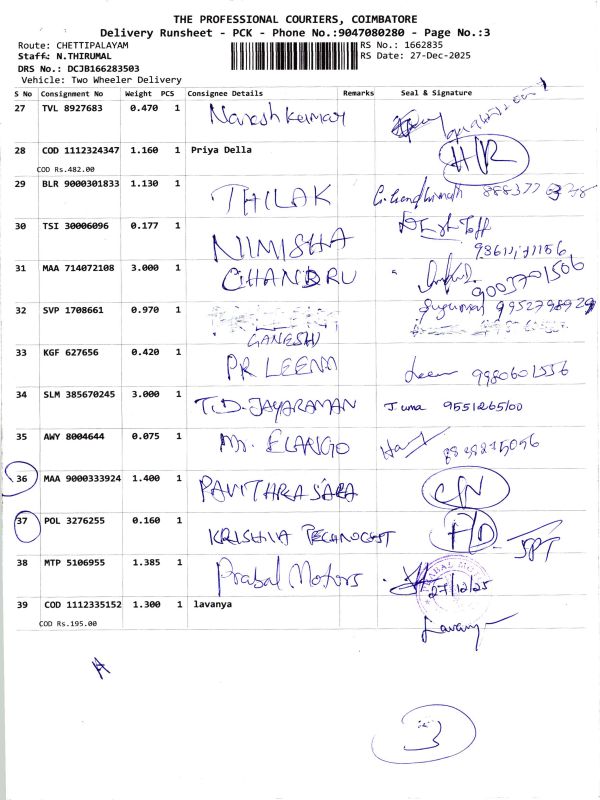 THE PROFESSIONAL COURIERS, COIMBATORE
Delivery Runsheet - PCK - Phone No.:9047080280 - Page No.:3
Route: CHETTIPALAYAM RS No.: 1662835
Staff: N.THIRUMAL RS Date: 27-Dec-2025
DRS No.: DCJB166283503
Vehicle: Two Wheeler Delivery
S No Consignment No Weight PCS Consignee Details Remarks Seal & Signature
27 TVL 8927683 0.470 1 Naresh kumar
28 COD 1112324347 1.160 1 Priya Della
COD Rs.482.00
29 BLR 9000301833 1.130 1 THILAK
30 TSI 30006096 0.177 1 NIMISHA
31 MAA 714072108 3.000 1 CHANDRU 9003701506
32 SVP 1708661 0.970 1 Sugumar 9952798929
GANESH
33 KGF 627656 0.420 1 PR LEENA Leena 9980601556
34 SLM 385670245 3.000 1 T.D. JAYARAMAN Juma 9551265100
35 AWY 8004644 0.075 1 Mr. ELANGO
36 MAA 9000333924 1.400 1 PAVITHRA SARA C/N
37 POL 3276255 0.160 1 KRISHNA TECHNOCAST
38 MTP 5106955 1.385 1 Prabal Motors 27/12/25
39 COD 1112335152 1.300 1 lavanya
COD Rs.195.00 Lavanya
3